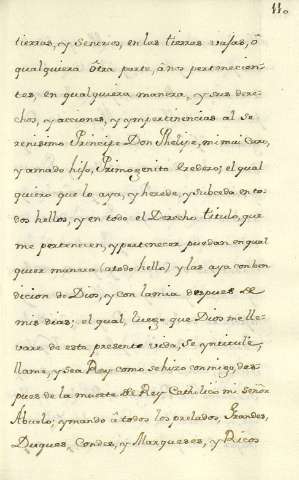 11.
tierras, y Señorios, en las tierras vajas, ô
qualquiera ôtra parte, â nos pertenecien-
tes, en qualquiera manera, y sus dere-
chos, y acciones, y ympertinencias al Se-
renisimo Principe Don Phelipe, mi mui caro,
y amado hijo, Primogenito heredero; el qual
quiero que lo aya, y herede, y subceda en to-
dos hellos, y en todo el Derecho titulo, que
me pertenecen, y pertenecer puedan en qual
quier manera (a todo hello) y las aya con ben
dicion de Dios, y con la mia despues de
mis dias; el qual, luego que Dios me lle-
vare de esta presente vida, se yntitule,
llame, y sea Rey como se hizo conmigo, des-
pues de la muerte del Rey Catholico mi señor
Abuelo; y mando â todos los prelados, Grandes,
Duques, Condes, y Marqueses, y Ricos